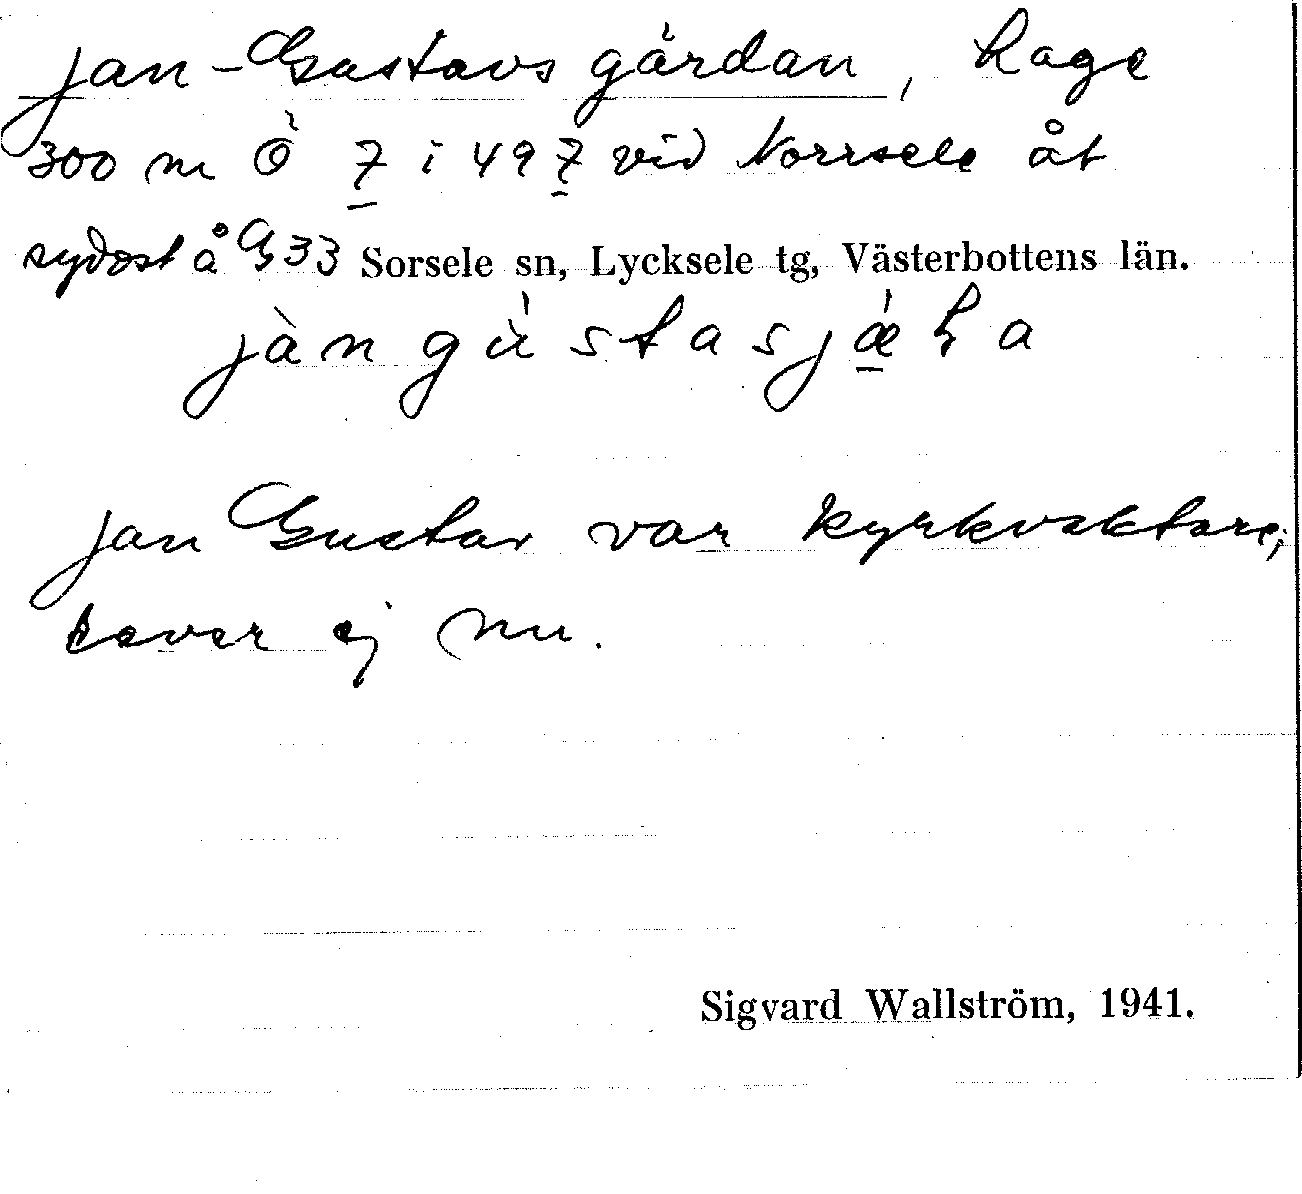 Jan-Gustavsgárdan, hage
300 m Ö 7 i 497 vid Norrsele åt
sydost å G33 Sorsele sn, Lycksele tg, Västerbottens län.
jàngústasjǽɽa
Jan Gustav var kyrkvaktare,
lever ej nu.
Sigvard Wallström, 1941.